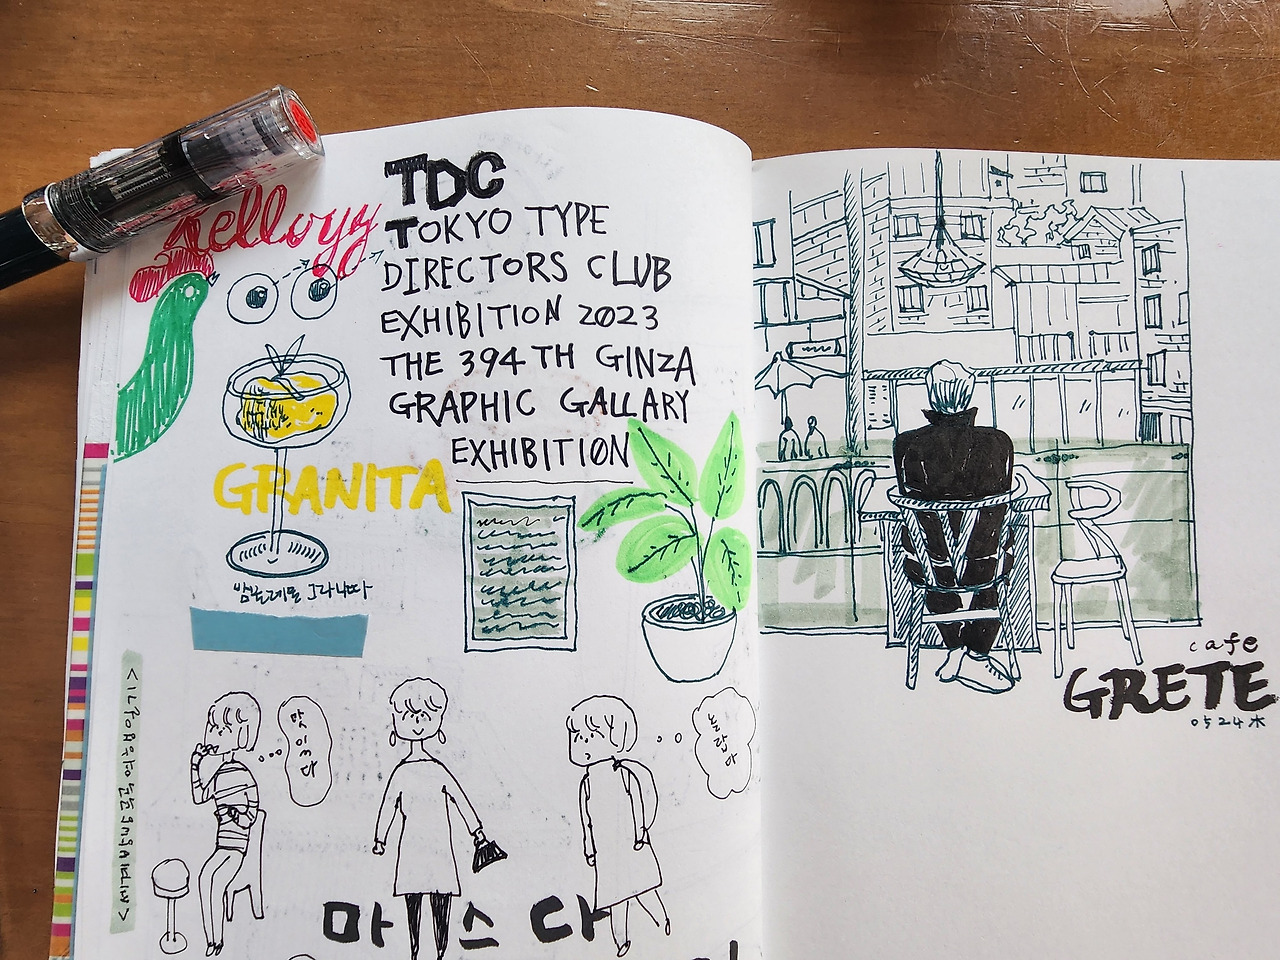 Kellogg
TDC
TOKYO TYPE
DIRECTORS CLUB
EXHIBITION 2023
THE 394TH GINZA
GRAPHIC GALLARY
EXHIBITION
GRANITA
맛있다
놀랍다
마스다
cafe
GRETE
0524木